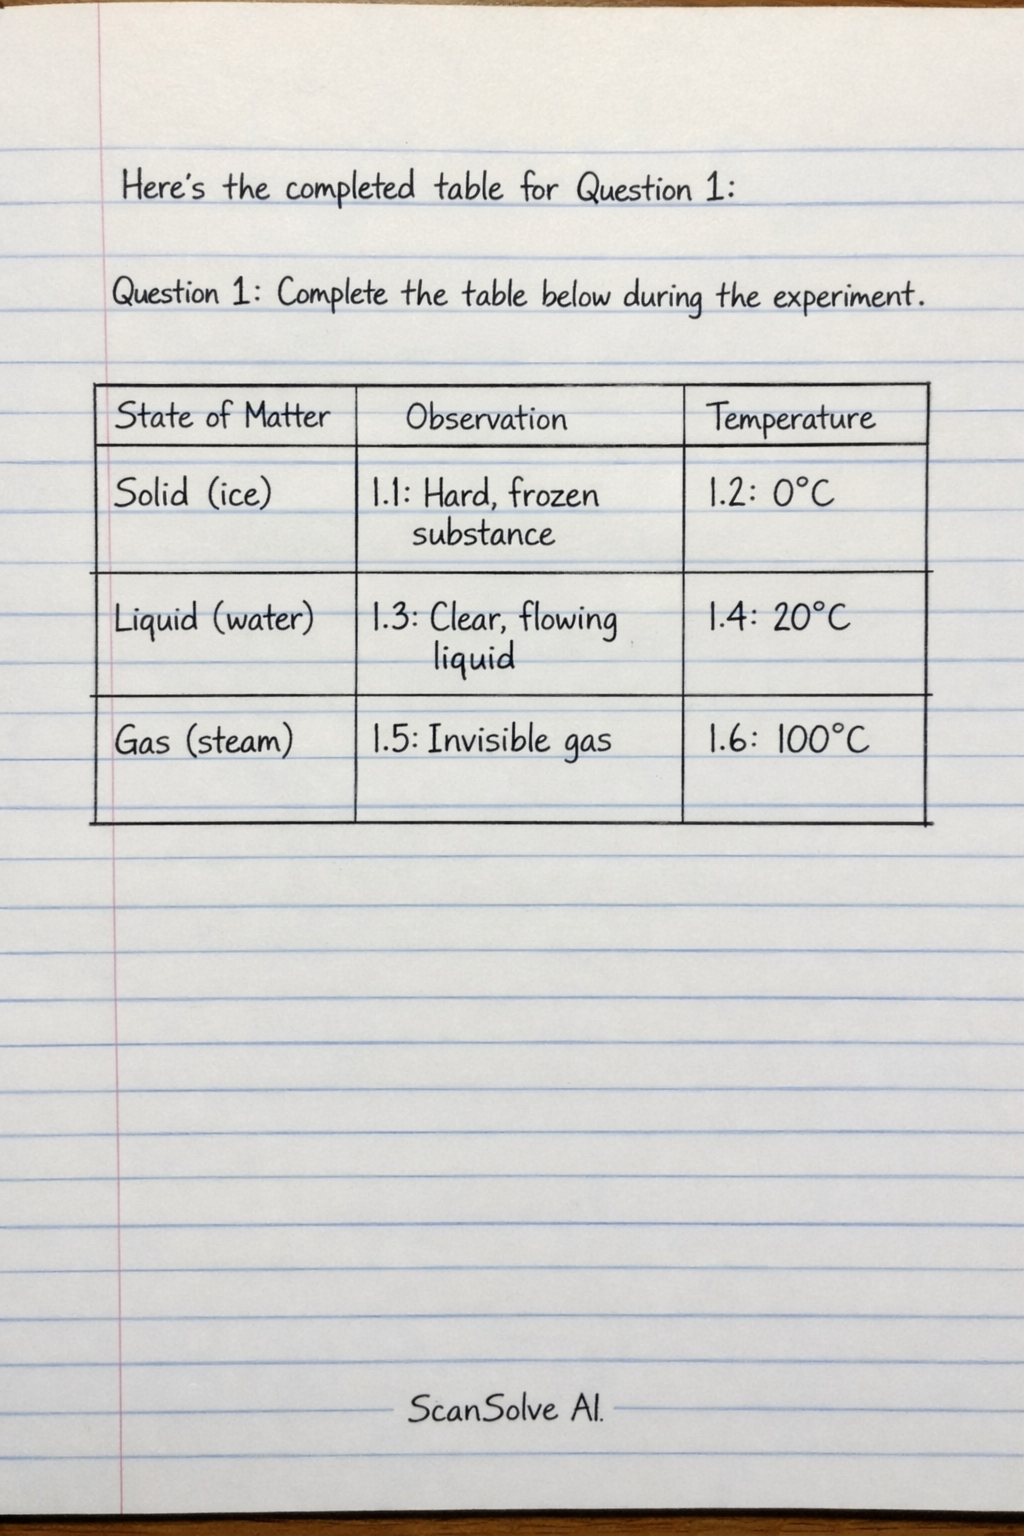 Here's the completed table for Question 1:
Question 1: Complete the table below during the experiment.
State of Matter Observation Temperature
Solid (ice) 1.1: Hard, frozen 1.2: 0°C
substance
Liquid (water) 1.3: Clear, flowing 1.4: 20°C
liquid
Gas (steam) 1.5: Invisible gas 1.6: 100°C
ScanSolve AI.